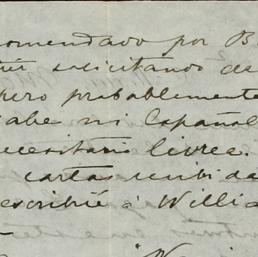 comendado por B
solicitando de
pero probablemente
sabe ni Español
necesitario libree.
cartas recibidas
escribié á Willia